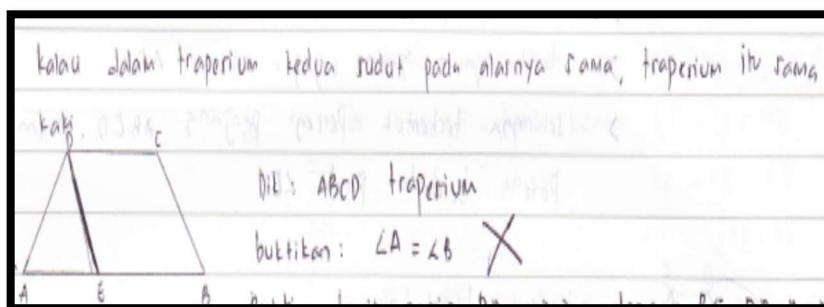 kalau dalam traperium kedua sudut pada alasnya sama, traperium itu sama
kaki
D C
Dik : ABCD traperium
buktikan : ∠A = ∠B
A E B